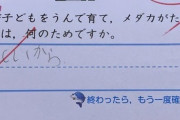 子どもをうんで育て，メダカがた
は，何のためですか。
いから
終わったら，もう一度確